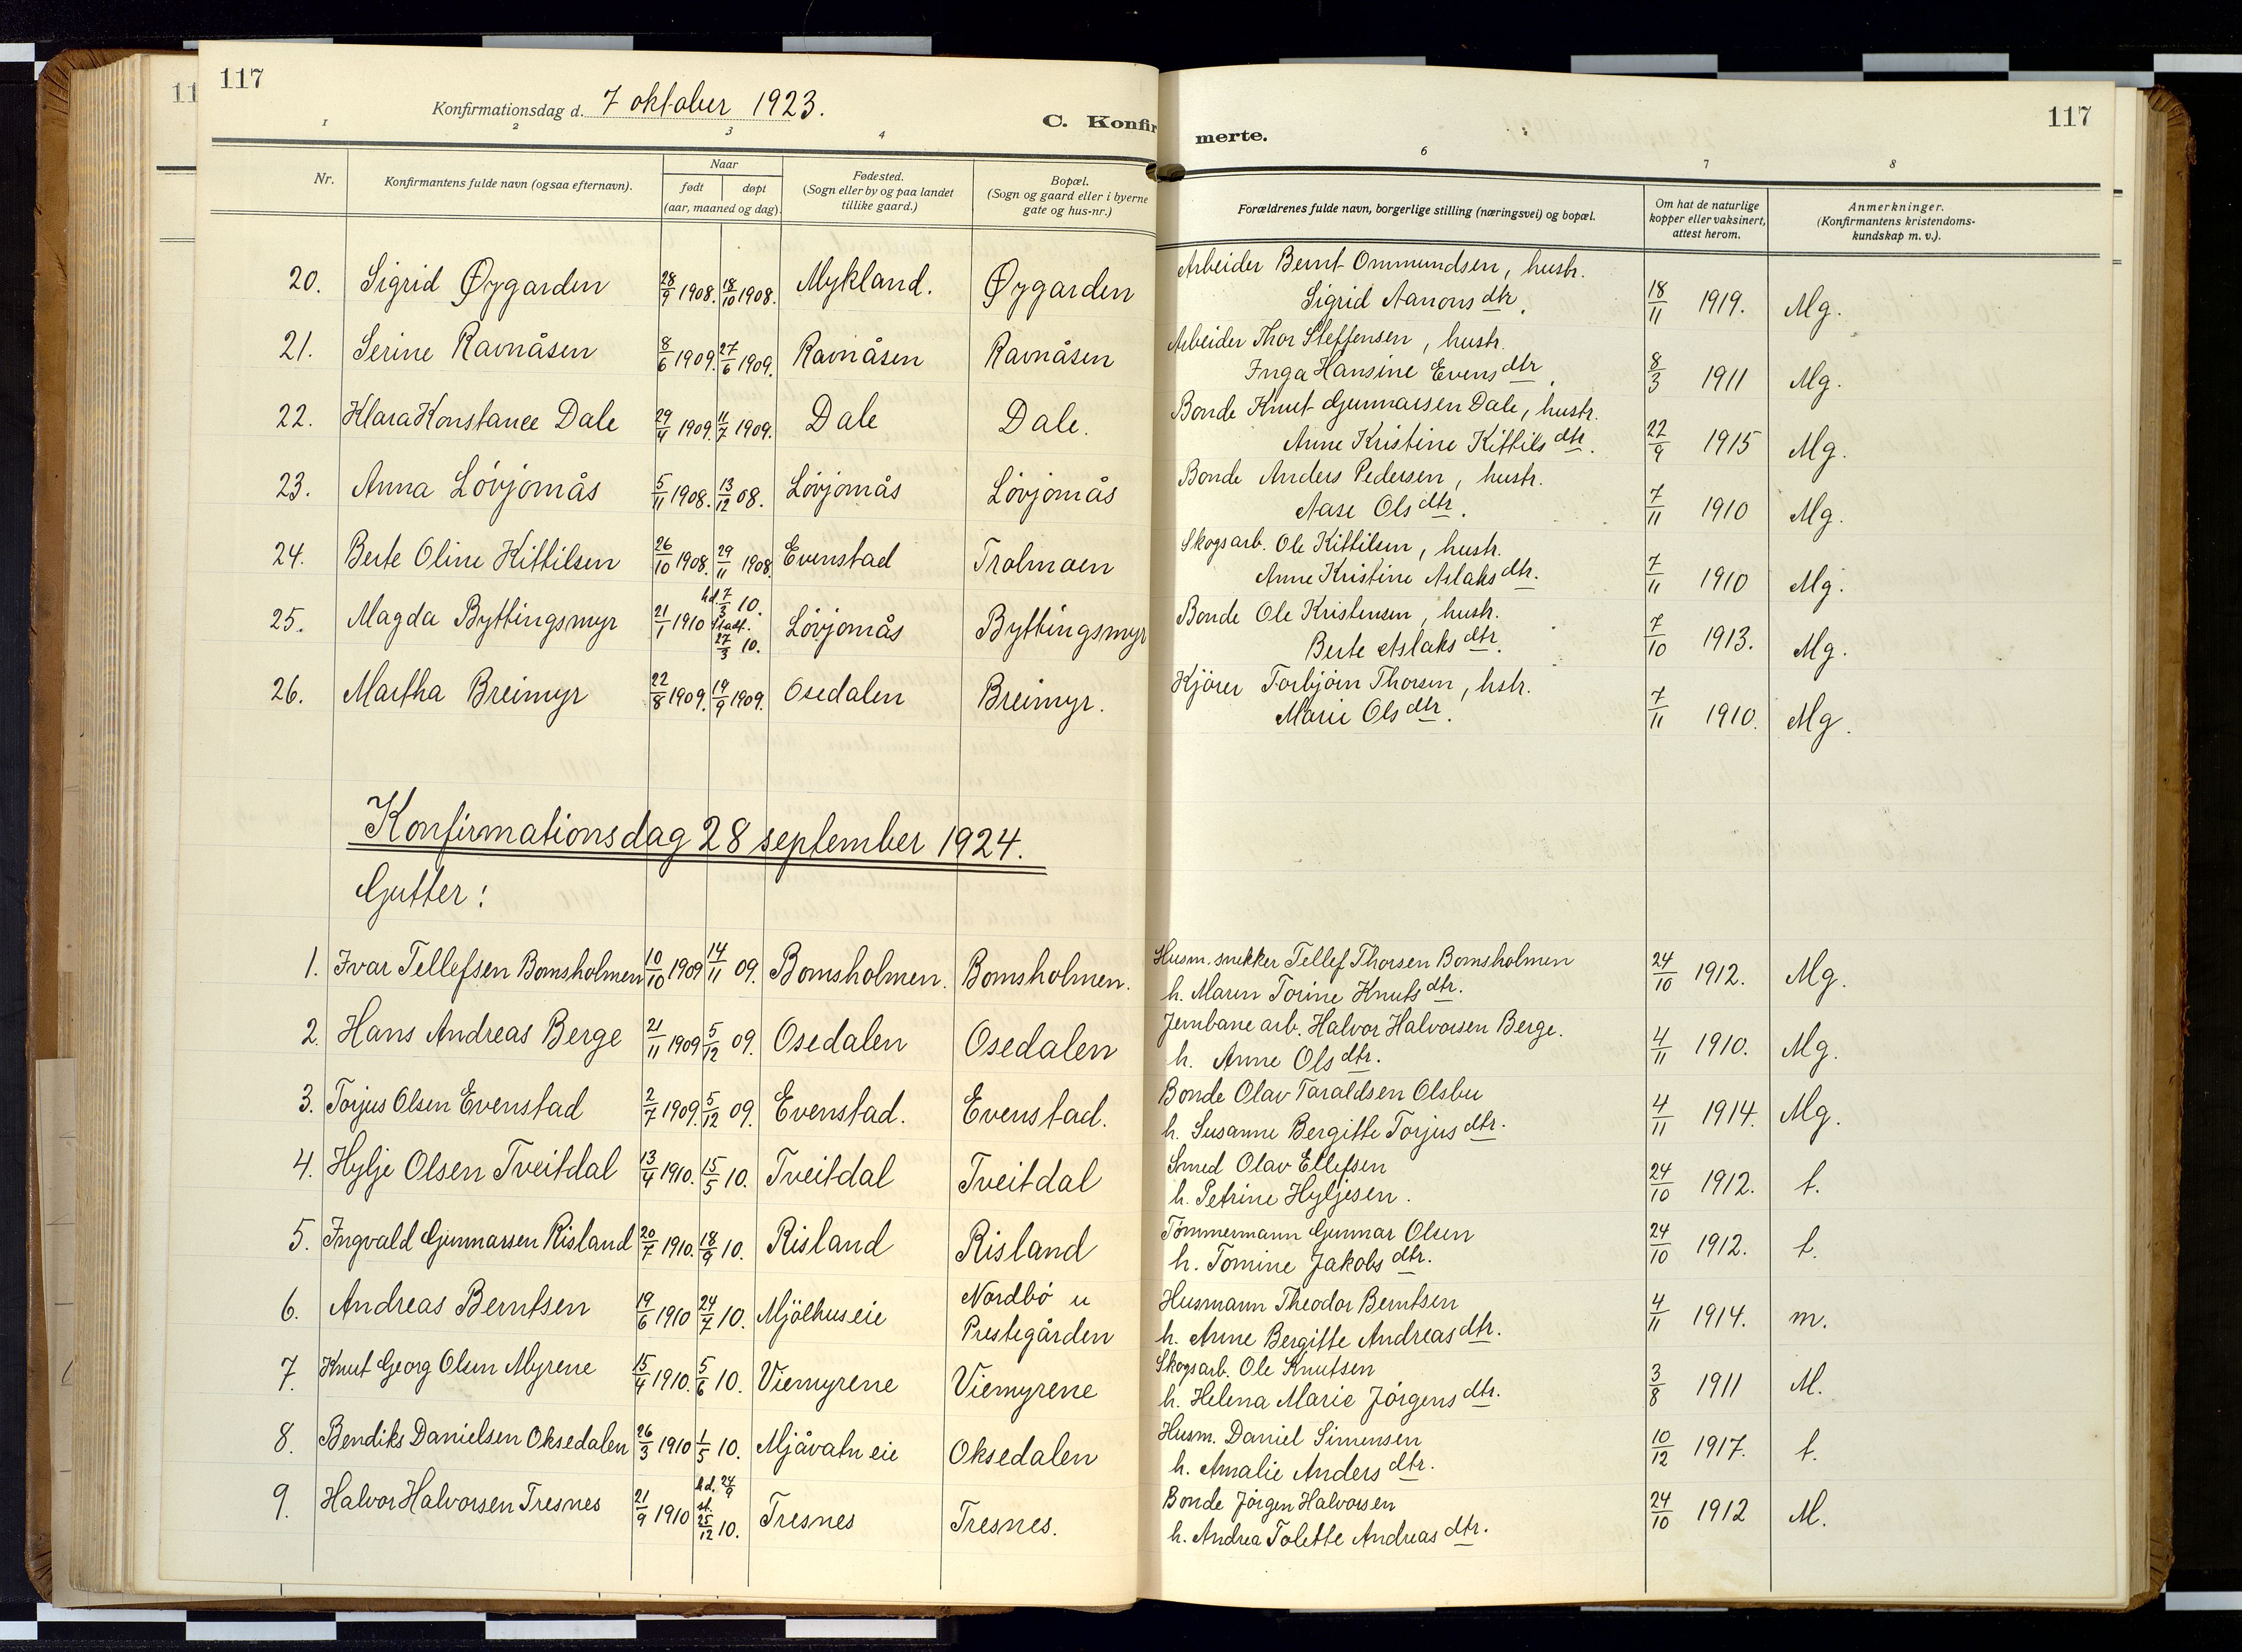 117
11
Konfirmationsdag d. 7 oktober 1923.
C. Konfir
merte.
117
1 2 3 4 6 7 8
Nr.
Konfirmantens fulde navn (ogsaa efternavn).
Naar
født døpt
(aar, maaned og dag).
Fødested.
(Sogn eller by og paa landet
tillike gaard.)
Bopæl.
(Sogn og gaard eller i byerne
gate og hus-nr.)
Forældrenes fulde navn, borgerlige stilling (næringsvei) og bopæl.
Om hat de naturlige
kopper eller vaksinert,
attest herom.
Anmerkninger.
(Konfirmantens kristendoms-
kundskap m. v.).
20. Sigrid Øygarden 28/9 1908. 18/10 1908. Mykland. Øygarden Arbeider Bernt Ommundsen, hustr.
Sigrid Aanonsdtr. 18/11 1919. Mg.
21. Serine Ravnåsen 8/6 1909. 27/6 1909. Ravnåsen Ravnåsen Arbeider Thor Steffensen, hustr.
Inga Hansine Evensdtr. 8/3 1911 Mg.
22. Klara Konstance Dale 29/4 1909. 11/7 1909. Dale Dale. Bonde Knut Gunnarsen Dale, hustr.
Anne Kristine Kittilsdtr. 22/9 1915 Mg.
23. Anna Løvjomås 5/11 1908. 13/12 08. Løvjomås Løvjomås Bonde Anders Pedersen, hustr.
Aase Olsdtr. 7/11 1910 Mg.
24. Berte Oline Kittilsen 26/10 1908. 29/11 1908. Evenstad Trolmoen Skogsarb. Ole Kittilsen, hustr.
Anne Kristine Aslaksdtr. 7/11 1910 Mg.
25. Magda Byttingsmyr 21/1 1910 hd. 7/3 10. stadf. 27/3 10. Løvjomås Byttingsmyr Bonde Ole Kristensen, hustr.
Berte Aslaksdtr. 7/10 1913. Mg.
26. Martha Breimyr 22/8 1909. 19/9 1909. Osedalen Breimyr. Kjører Torbjørn Thorsen, hstr.
Marie Olsdtr. 7/11 1910. Mg.
Konfirmationsdag 28 september 1924.
Gutter:
1. Ivar Tellefsen Bomsholmen 10/10 1909 14/11 09. Bomsholmen. Bomsholmen. Husm. snekker Tellef Thorsen Bomsholmen
h. Maren Torine Knutsdtr. 24/10 1912. Mg.
2. Hans Andreas Berge 21/11 1909 5/12 09. Osedalen Osedalen Jernbanearb. Halvor Halvorsen Berge.
h. Anne Olsdtr. 4/11 1910. Mg.
3. Torjus Olsen Evenstad 2/7 1909. 5/12 09. Evenstad. Evenstad. Bonde Olav Taraldsen Olsbu
h. Susanne Bergitte Torjusdtr. 4/11 1914. Mg.
4. Hylje Olsen Tveitdal 13/4 1910. 15/5 10. Tveitdal Tveitdal Smed Olav Ellefsen
h. Petrine Hyljesen. 24/10 1912. t.
5. Ingvald Gunnarsen Risland 20/7 1910. 18/9 10. Risland Risland Tømmermann Gunnar Olsen
h. Tomine Jakobsdtr. 24/10 1912. t.
6. Andreas Berntsen 19/6 1910 24/7 10. Mjölhuseie Nordbö u
Prestegården Husmann Theodor Berntsen
h. Anne Bergitte Andreasdtr. 4/11 1914. m.
7. Knut Georg Olsen Myrene 15/4 1910. 5/6 10. Viemyrene Viemyrene Skogsarb. Ole Knutsen
h. Helena Marie Jörgensdtr. 3/8 1911 M.
8. Bendiks Danielsen Oksedalen 26/3 1910 1/5 10. Mjåvatn eie Oksedalen Husm. Daniel Simensen
h. Amalie Andersdtr. 10/12 1917. t.
9. Halvor Halvorsen Tresnes 21/9 1910 hd. 24/9 st. 25/12 10. Tresnes Tresnes. Bonde Jörgen Halvorsen
h. Andrea Tolette Andreasdtr. 24/10 1912 M.